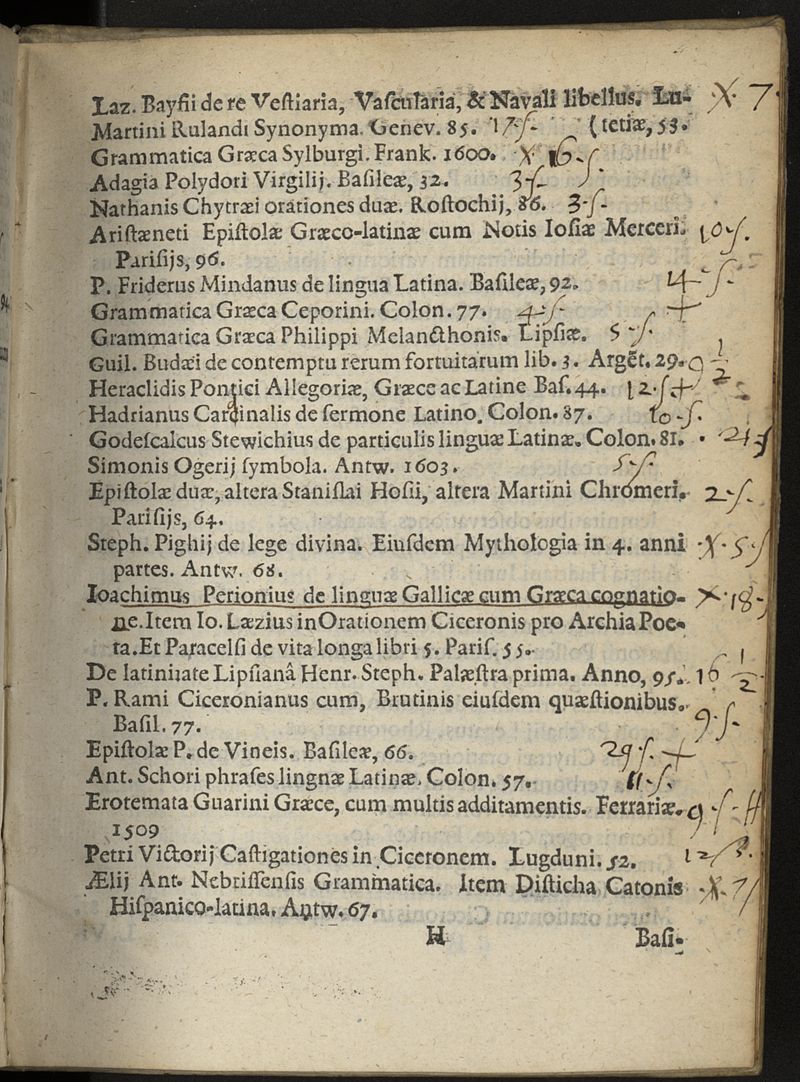 Laz. Bayſii de re Veſtiaria, Vaſcularia, & Navali libellus. Lu- X 7
Martini Rulandi Synonyma. Genev. 85. 17 ſ- (tetiæ, 53.
Grammatica Græca Sylburgi. Frank. 1600. X 16-ſ
Adagia Polydori Virgilij. Baſileæ, 32. 3-ſ-
Nathanis Chytræi orationes duæ. Roſtochij, 86. 3-ſ-
Ariſtæneti Epiſtolæ Græco-latinæ cum Notis Ioſiæ Merceri. 10ſ.
Pariſijs, 96.
P. Friderus Mindanus de lingua Latina. Baſileæ, 92. 14-ſ-
Grammatica Græca Ceporini. Colon. 77. 4-ſ- +
Grammatica Græca Philippi Melanchthonis. Lipſiæ. 5-ſ-
Guil. Budæi de contemptu rerum fortuitarum lib. 3. Argēt. 29. 9 1/2
Heraclidis Pontici Allegoriæ, Græce ac Latine Baſ. 44. 12.ſ+
Hadrianus Cardinalis de ſermone Latino. Colon. 87. 10-ſ.
Godeſcalcus Stewichius de particulis linguæ Latinæ. Colon. 81. 24ſ
Simonis Ogerij ſymbola. Antw. 1603. 5ſ-
Epiſtolæ duæ, altera Staniſlai Hoſii, altera Martini Chromeri. 2-ſ.
Pariſijs, 64.
Steph. Pighij de lege divina. Eiuſdem Mythologia in 4. anni X 5-ſ
partes. Antw. 68.
Ioachimus Perionius de linguæ Gallicæ cum Græca cognatio- X 18-
ne. Item Io. Læzius in Orationem Ciceronis pro Archia Poe-
ta. Et Paracelſi de vita longa libri 5. Pariſ. 55.
De latinitate Lipſianâ Henr. Steph. Palæſtra prima. Anno, 95. 16 1/2
P. Rami Ciceronianus cum, Brutinis eiuſdem quæſtionibus.
Baſil. 77. 9-ſ-
Epiſtolæ P. de Vineis. Baſileæ, 66. 29ſ. +
Ant. Schori phraſes lingnæ Latinæ. Colon. 57. 11-ſ.
Erotemata Guarini Græce, cum multis additamentis. Ferrariæ. 9ſ-
1509
Petri Victorij Caſtigationes in Ciceronem. Lugduni. 52. 12
Ælij Ant. Nebriſſenſis Grammatica. Item Diſticha Catonis X 7
Hiſpanico-latina. Antw. 67.
H Baſi-